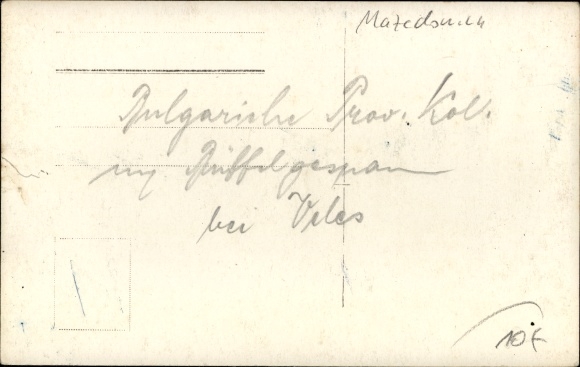 Mazedonien
Bulgarische Prov. Kol.
mit Büffelgespann
bei Veles
10,-